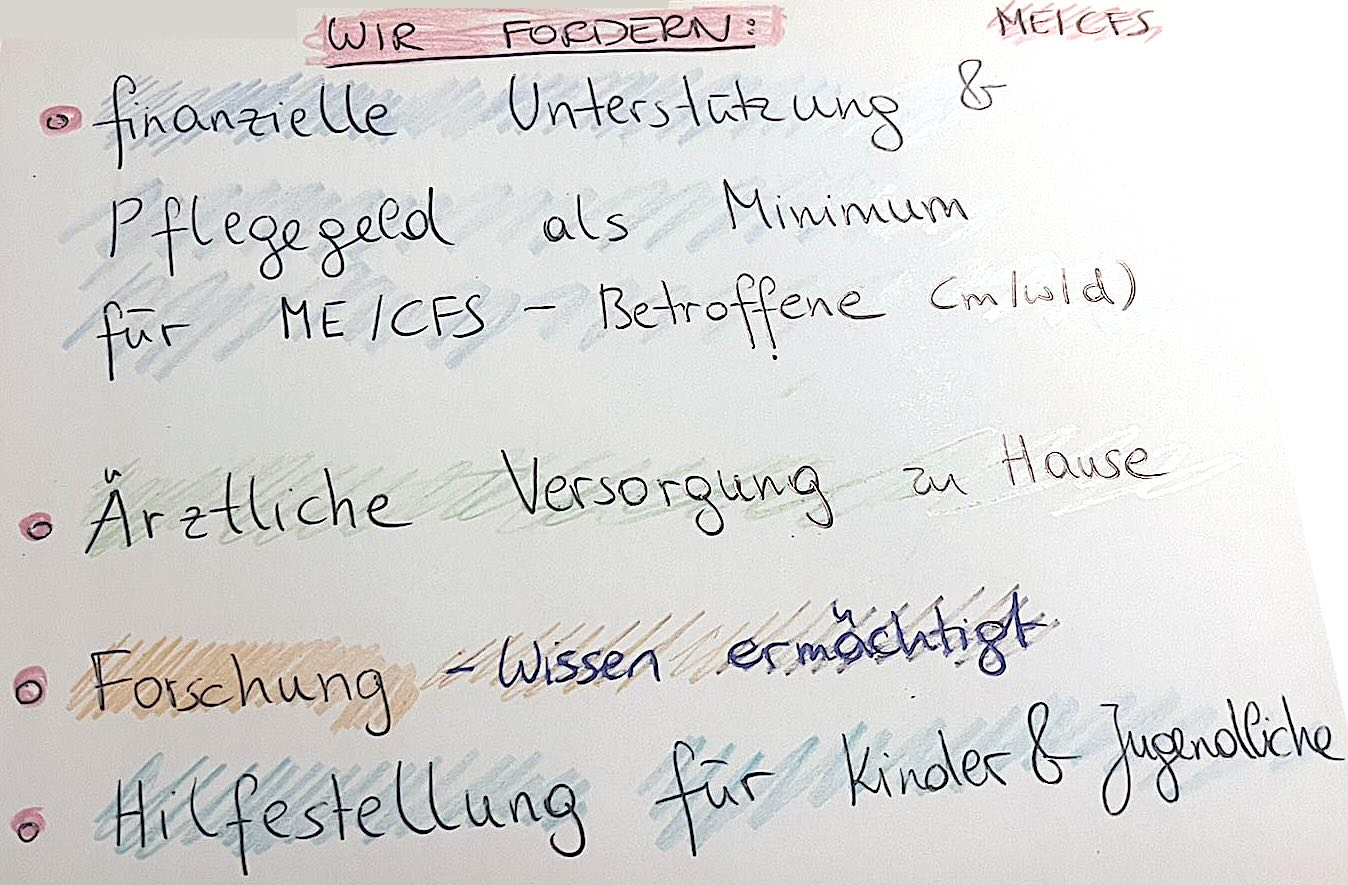 WIR FORDERN: ME/CFS
• finanzielle Unterstützung &
Pflegegeld als Minimum
für ME/CFS - Betroffene (m/w/d)
• Ärztliche Versorgung zu Hause
• Forschung - Wissen ermächtigt
• Hilfestellung für Kinder & Jugendliche